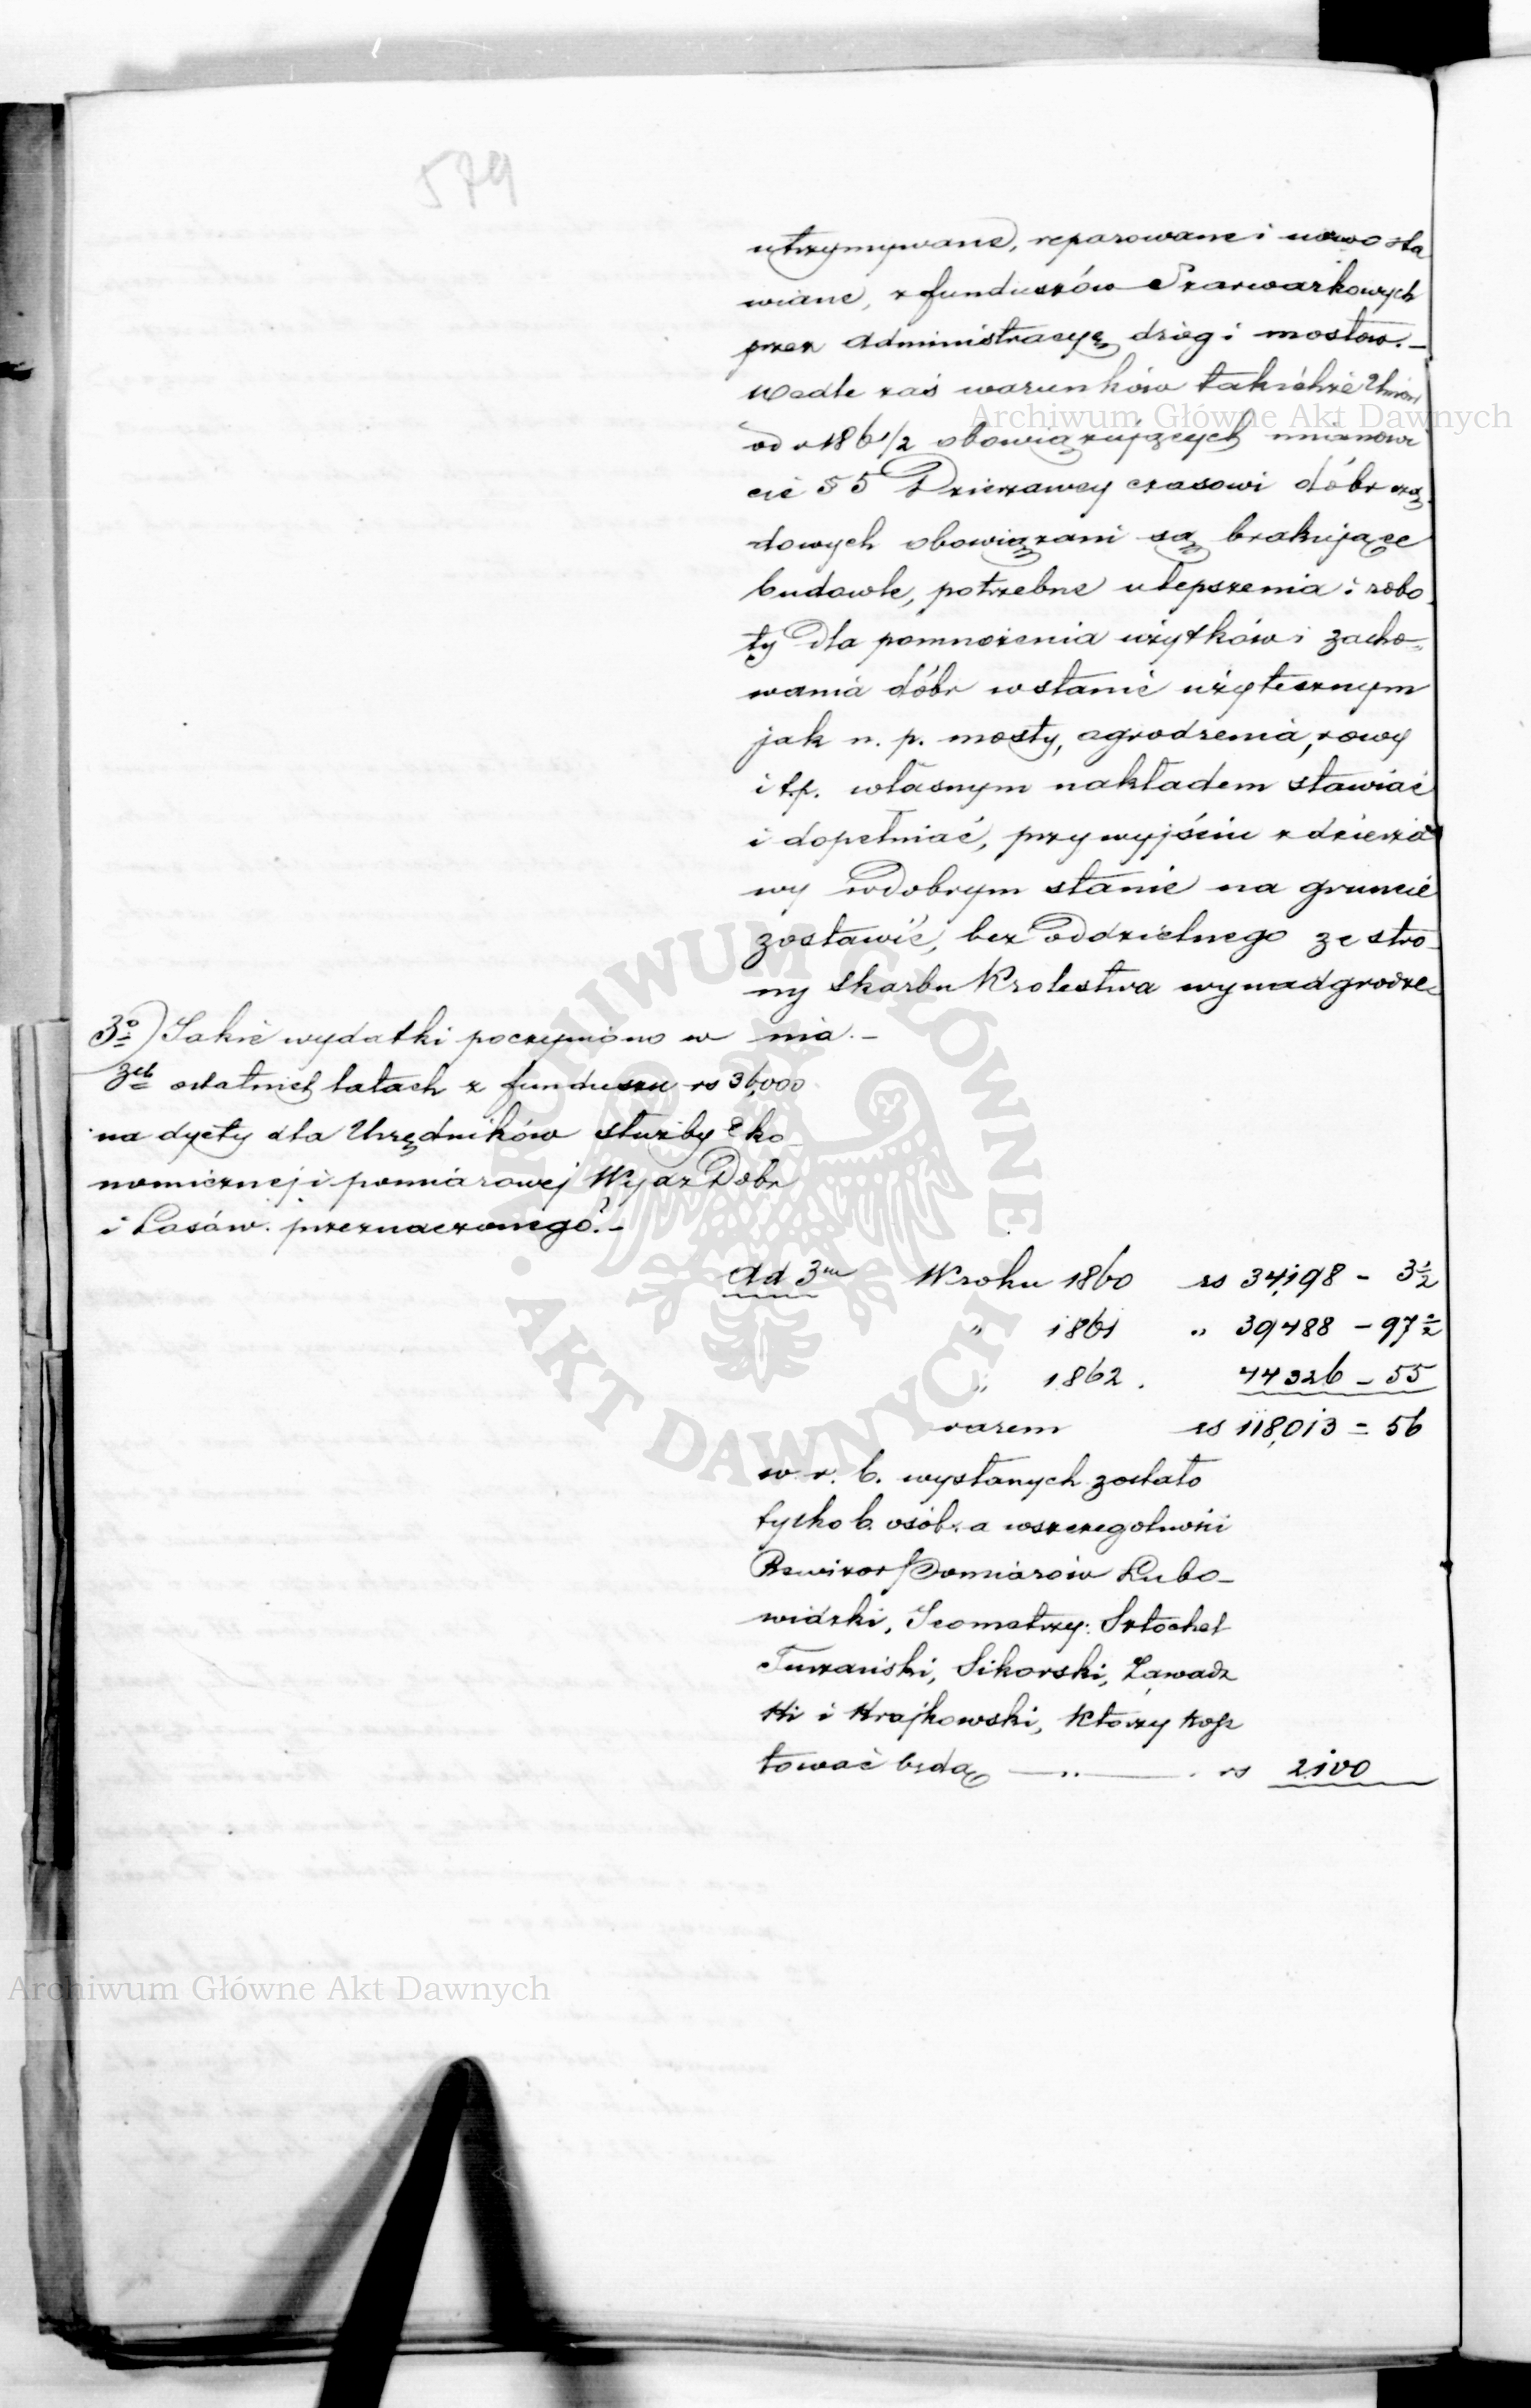 579
utrzymywane, reparowane i nowo sta
wiane, z funduszów Szarwarkowych
przez Administracyę dróg i mostów.—
Wedle zaś warunków takichże Umów
od r 186½ obowiązujących mianowi
cie § 5 Dzierzawcy czasowi dóbr rzą
dowych obowiązani są brakujące
budowle, potrzebne ulepszenia i robo
ty dla pomnożenia użytków i zacho„
wania dóbr w stanie użytecznym
jak n. p. mosty, ogrodzenia, rowy
i t.p. własnym nakładem stawiać
i dopełniać, przy wyjściu z dzierża
wy w dobrym stanie na gruncie
zostawić, bez oddzielnego ze stro
ny Skarbu Krolestwa wynadgrodze„
nia.—
3o) Jakie wydatki poczyniono w
3ch ostatnich latach z funduszu rs 36,000
na dyety dla Urzędników służby Eko
nomicznej i pomiarowej Wydz Dóbr
i Lasów przeznaczonego?—
Ad 3m W roku 1860 rs 34,198 - 3½
„ 1861 „ 39488 - 97½
„ 1862. 44326 - 55
razem rs 118,013 = 56
w r. b. wysłanych zostało
tylko 6. osób. a wszczegolności
Rewizor Pomiarów Lubo-
widzki, Jeometrzy: Sztochel
Turzański, Sikorski, Zawadz
ki i Krajkowski, którzy kosz
tować będą —„— rs 2100
Archiwum Główne Akt Dawnych
Archiwum Główne Akt Dawnych
ARCHIWUM GŁÓWNE AKT DAWNYCH